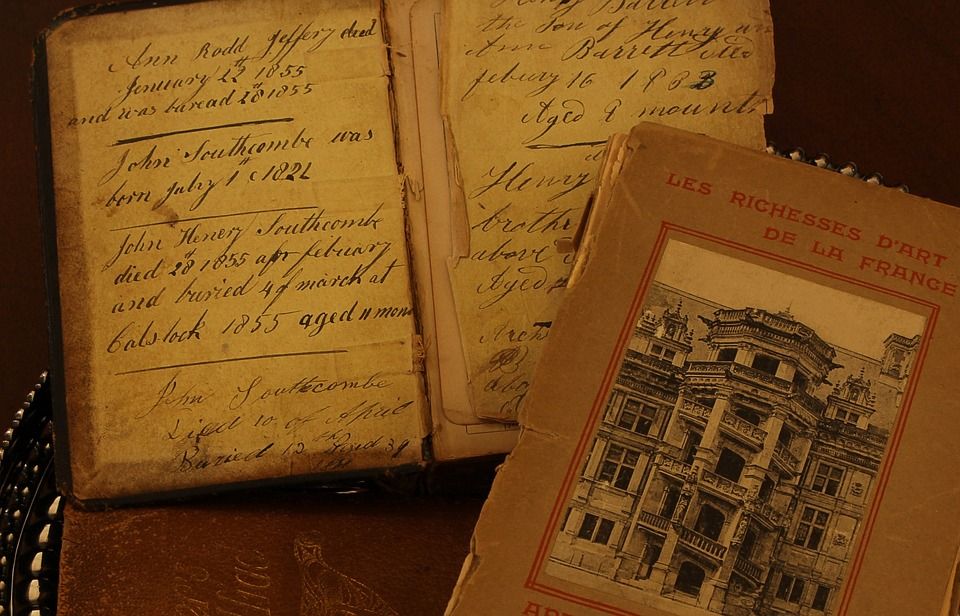 Ann Rodd Jeffery died
January 22th 1855
and was buread 28 1855
John Southcombe was
born July 1st 1821
John Henery Southcombe
died 28 1855 apr febuary
and buried 4 of march at
Calstock 1855 aged 11 mon
John Southcombe
Died 10 of April
Buried 12
the Son of Henry
Ann Barrett died
febury 16 1883
Aged 9 mounth
Henry
brothr
above
Aged
LES RICHESSES D'ART
DE LA FRANCE